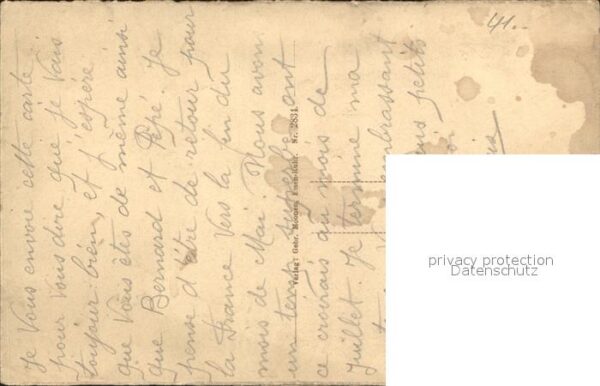 Je Vous envoie cette carte
pour Vous dire que je Vais
toujour bien, et j'espère
que Vous êts de même ainsi
que Bernard et Pépé. Je
pense d'être de retour pour
la France Vers la fin du
mois de Mai. Nous avons
un temp superbe ont
ce croirais au mois de
Juillet. Je termine ma
embrassant
petits
Verlag: Gebr. Nr. 2831
41.
privacy protection
Datenschutz